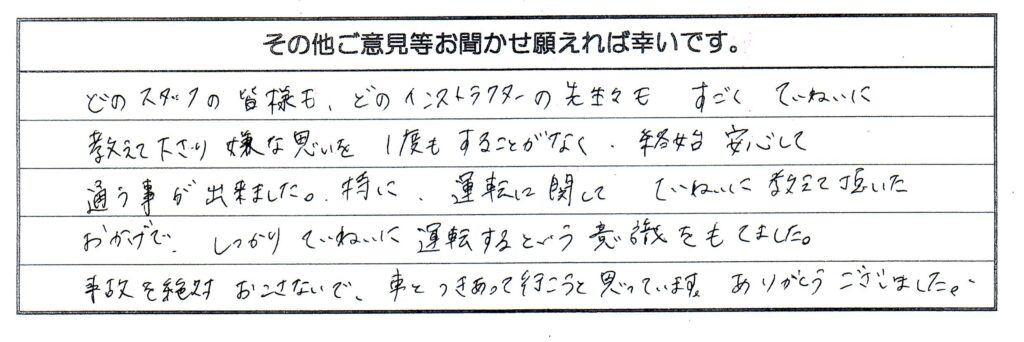 その他ご意見等お聞かせ願えれば幸いです。
どのスタッフの皆様も、どのインストラクターの先生々も すごく ていねいに
教えて下さり 嫌な思いを 1度も することがなく、終始 安心して
通う事が出来ました。特に、運転に関して ていねいに教えて頂いた
おかげで、しっかりていねいに運転するという意識をもてました。
事故を絶対おこさないで、車とつきあって行こうと思っています。ありがとうございました。